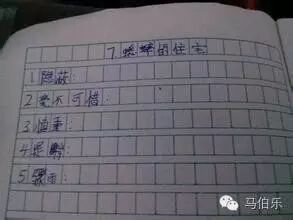 7.蟋蟀的住宅
1.隐蔽:
2.毫不可惜:
3.慎重:
4.
5.骤雨:
马伯乐